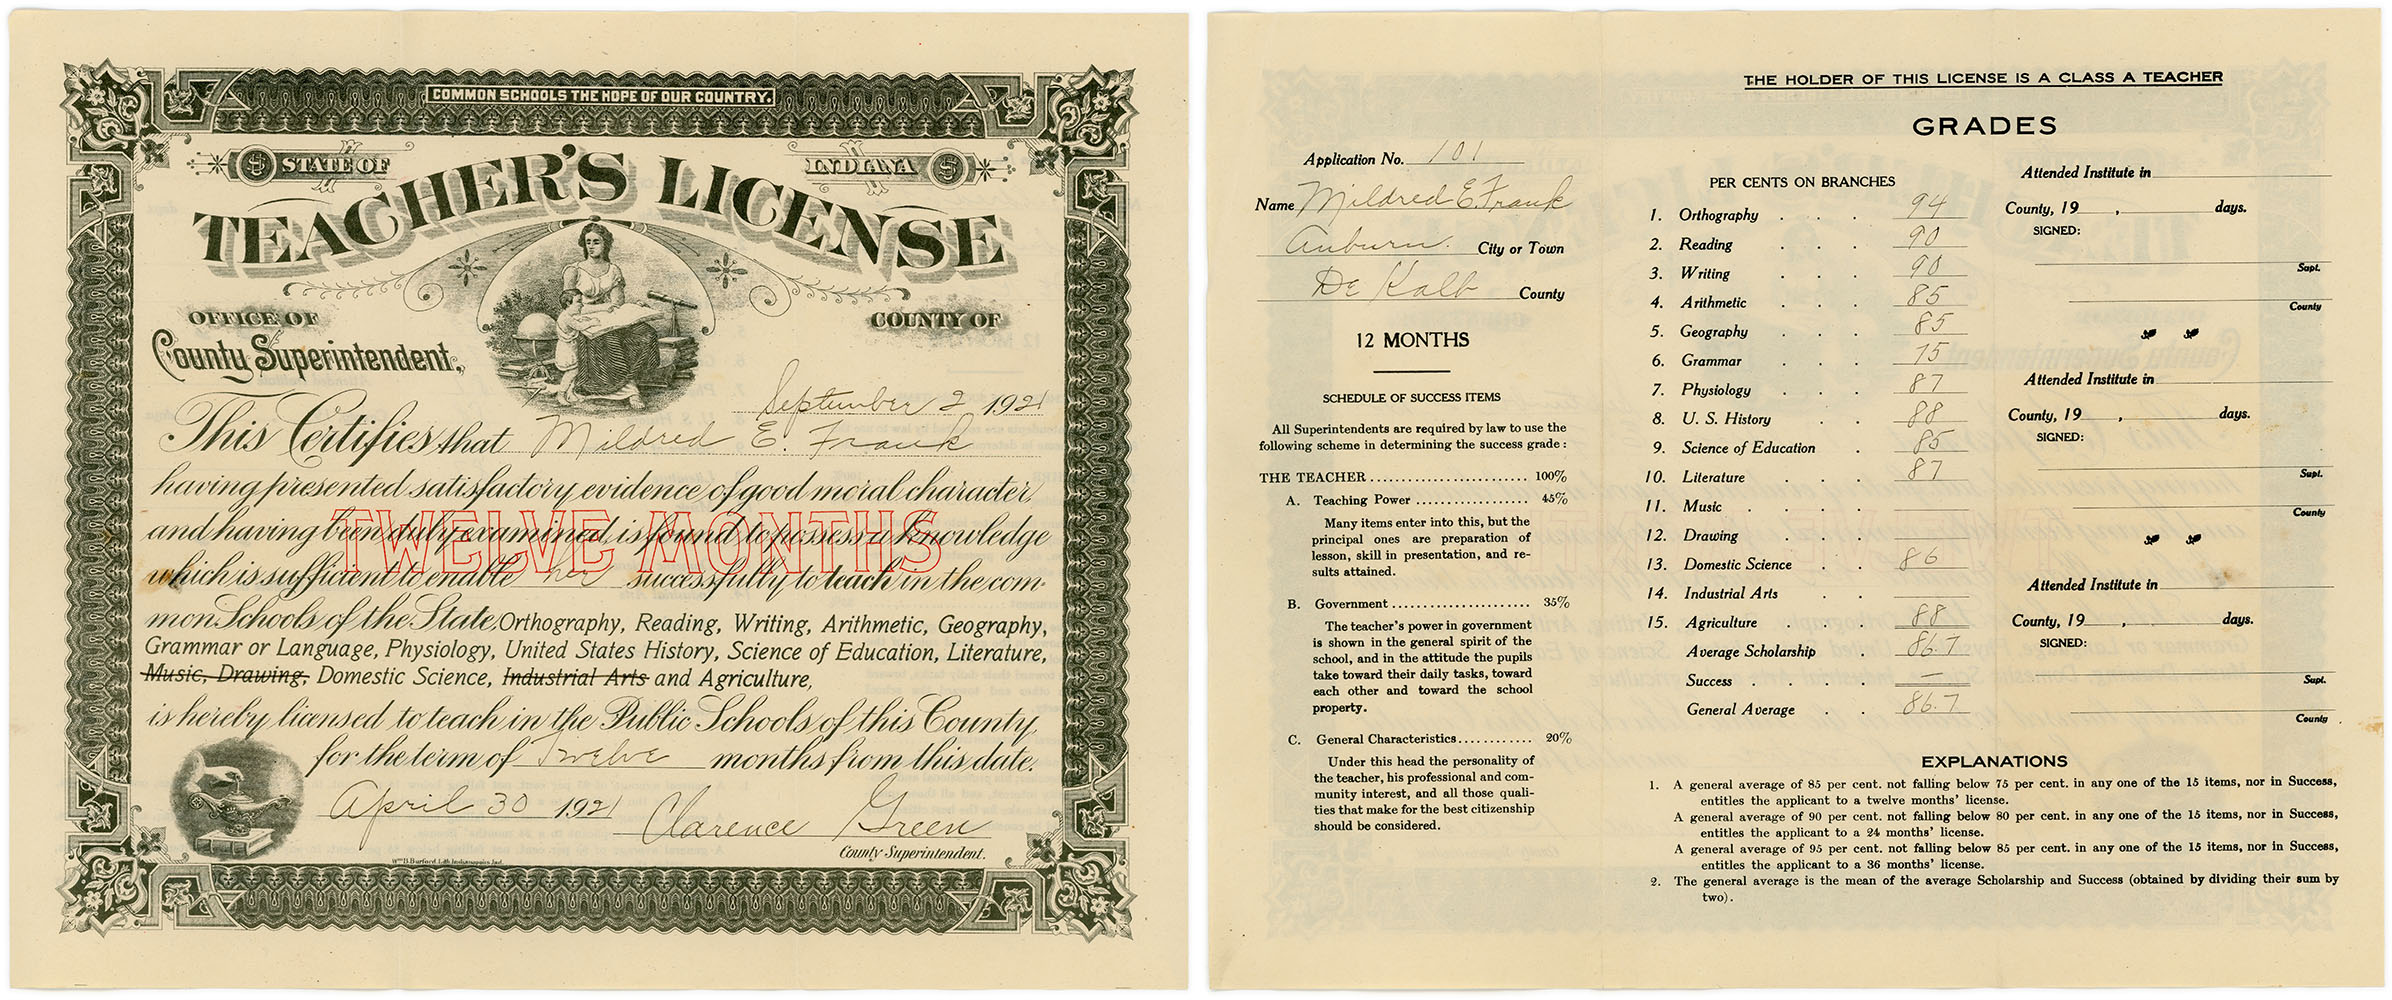 COMMON SCHOOLS THE HOPE OF OUR COUNTRY.
STATE OF INDIANA
TEACHER'S LICENSE
OFFICE OF
County Superintendent,
COUNTY OF
September 2 1921
This Certifies that Mildred E. Frank
having presented satisfactory evidence of good moral character,
and having been duly examined, is found to possess a knowledge
TWELVE MONTHS
which is sufficient to enable her successfully to teach in the com-
mon Schools of the State, Orthography, Reading, Writing, Arithmetic, Geography,
Grammar or Language, Physiology, United States History, Science of Education, Literature,
Music, Drawing, Domestic Science, Industrial Arts and Agriculture,
is hereby licensed to teach in the Public Schools of this County,
for the term of Twelve months from this date.
April 30 1921 Clarence Green
County Superintendent.
Wm B. Burford Lith Indianapolis Ind.
THE HOLDER OF THIS LICENSE IS A CLASS A TEACHER
Application No. 101
Name Mildred E. Frank
Auburn. City or Town
De Kalb County
12 MONTHS
SCHEDULE OF SUCCESS ITEMS
All Superintendents are required by law to use the
following scheme in determining the success grade:
THE TEACHER 100%
A. Teaching Power 45%
Many items enter into this, but the
principal ones are preparation of
lesson, skill in presentation, and re-
sults attained.
B. Government 35%
The teacher's power in government
is shown in the general spirit of the
school, and in the attitude the pupils
take toward their daily tasks, toward
each other and toward the school
property.
C. General Characteristics 20%
Under this head the personality of
the teacher, his professional and com-
munity interest, and all those quali-
ties that make for the best citizenship
should be considered.
GRADES
PER CENTS ON BRANCHES
1. Orthography . . . 94
2. Reading . . . 90
3. Writing . . . 90
4. Arithmetic . . . 85
5. Geography . . . 85
6. Grammar . . . 75
7. Physiology . . . 87
8. U. S. History . . . 88
9. Science of Education . 85
10. Literature . . . 87
11. Music . . . .
12. Drawing . . .
13. Domestic Science . . 86
14. Industrial Arts . .
15. Agriculture . . . 88
Average Scholarship . 86.7
Success . . . . —
General Average . . 86.7
Attended Institute in
County, 19 , days.
SIGNED:
Supt.
County
Attended Institute in
County, 19 , days.
SIGNED:
Supt.
County
Attended Institute in
County, 19 , days.
SIGNED:
Supt.
County
EXPLANATIONS
1. A general average of 85 per cent. not falling below 75 per cent. in any one of the 15 items, nor in Success,
entitles the applicant to a twelve months' license.
A general average of 90 per cent. not falling below 80 per cent. in any one of the 15 items, nor in Success,
entitles the applicant to a 24 months' license.
A general average of 95 per cent. not falling below 85 per cent. in any one of the 15 items, nor in Success,
entitles the applicant to a 36 months' license.
2. The general average is the mean of the average Scholarship and Success (obtained by dividing their sum by
two).